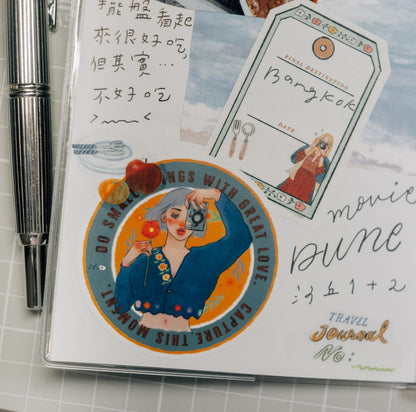 擺盤看起
來很好吃,
但其實…
不好吃
FINAL DESTINATION
Bangkok
DATE
DO SMALL THINGS WITH GREAT LOVE.
CAPTURE THIS MOMENT.
movie
DUNE
沙丘 1 + 2
TRAVEL
Journal
No: